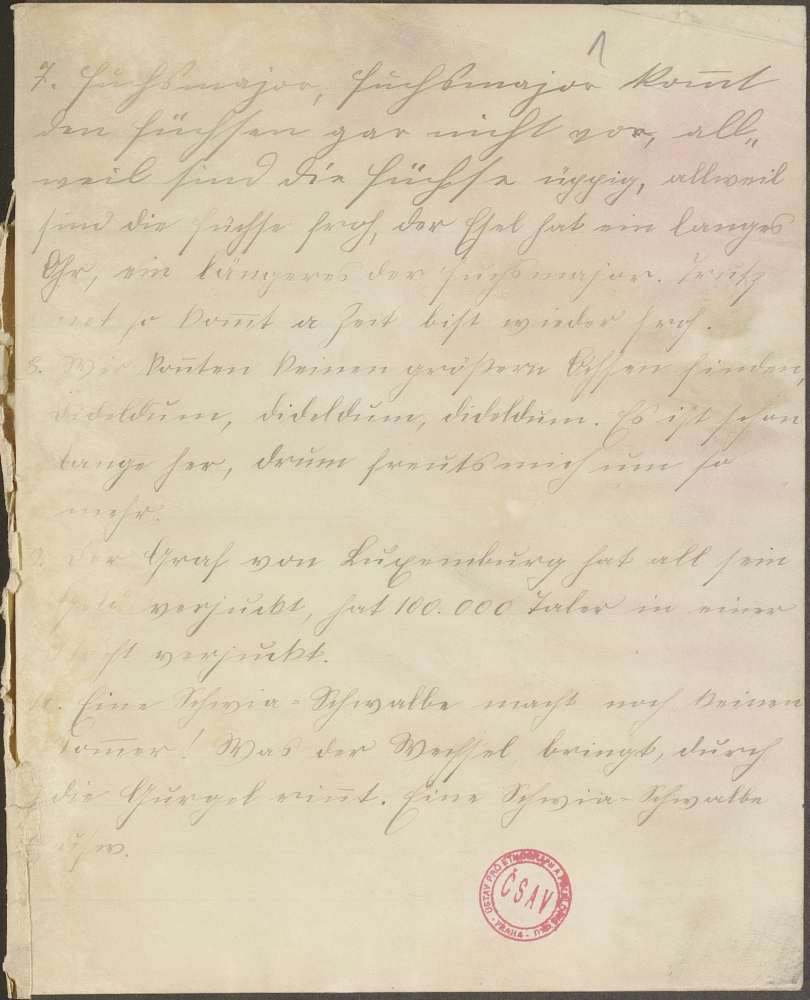 1
7. Fuchsmajor, Fuchsmajor kom̅t
den Füchsen gar nicht vor, all„
weil sind die Füchse üppig, allweil
sind die Füchse froh, der Esel hat ein langes
Ohr, ein längeres der Fuchsmajor. Trutz
net so kom̅t a Zeit bist wieder froh.
8. Wir kon̅ten keinen größern Ochsen finden,
dideldum, dideldum, dideldum. Es ist schon
lange her, drum freuts mich um so
mehr.
9. Der Graf von Luxemburg hat all sein
Geld verjuckt, hat 100.000 Taler in einer
Nacht verjuckt.
10. Eine Schwia-Schwalbe macht noch keinen
Som̅er! Was der Wechsel bringt, durch
die Gurgel rin̅t. Eine Schwia-Schwalbe
usw.
ÚSTAV PRO ETNOGRAFII A FOLKLORISTIKU
ČSAV
PRAHA